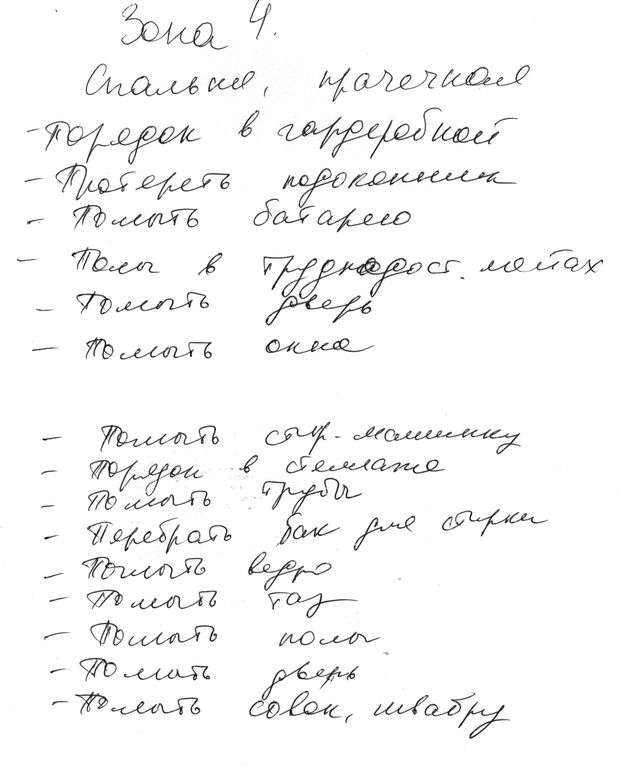 Зона 4.
Спальня, прачечная
- Порядок в гардеробной
- Протереть подоконник
- Помыть батарею
- Полы в труднодост. местах
- Помыть дверь
- Помыть окна
- Помыть стир. машинку
- Порядок в стеллаже
- Помыть трубы
- Перебрать бак для стирки
- Помыть ведро
- Помыть таз
- Помыть полы
- Помыть дверь
- Помыть совок, швабру